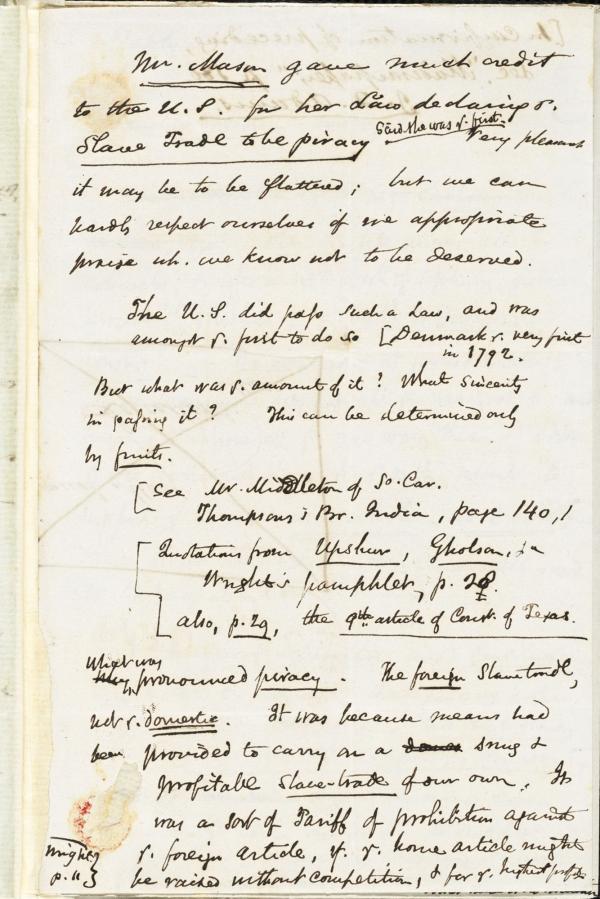 Mr. Mason gave much credit
to the U.S. for her Law declaring ye.
Slave Trade to be piracy Said she was ye. first. Very pleasant
it may be to be flattered; but we can
hardly respect ourselves if we appropriate
praise wh. we know not to be deserved.
The U.S. did pass such a Law, and was
amongst ye. first to do so [Denmark ye. very first
in 1792.
But what was ye. amount of it? What sincerity
in passing it? This can be determined only
by fruits.
[See Mr. Middleton of So. Car.
Thompson's Br. India, page 140,1
[Quotations from Upshur, Gholson, in
Wright's pamphlet, p. 28.
also, p. 29, the 9th article of Const. of Texas.
What was
pronounced piracy. The foreign Slave trade,
not ye. domestic. It was because means had
been provided to carry on a snug &
profitable slave-trade of our own. It
was a sort of Tariff of prohibition against
ye. foreign article, yt. ye. home article might
be raised without competition, & for ye. highest
Wright
p. 11.}